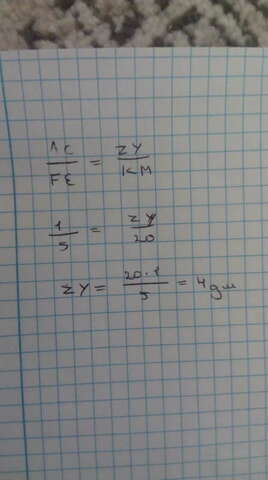 AC/FE = ZY/KM
1/5 = ZY/20
ZY = 20·1/5 = 4дм